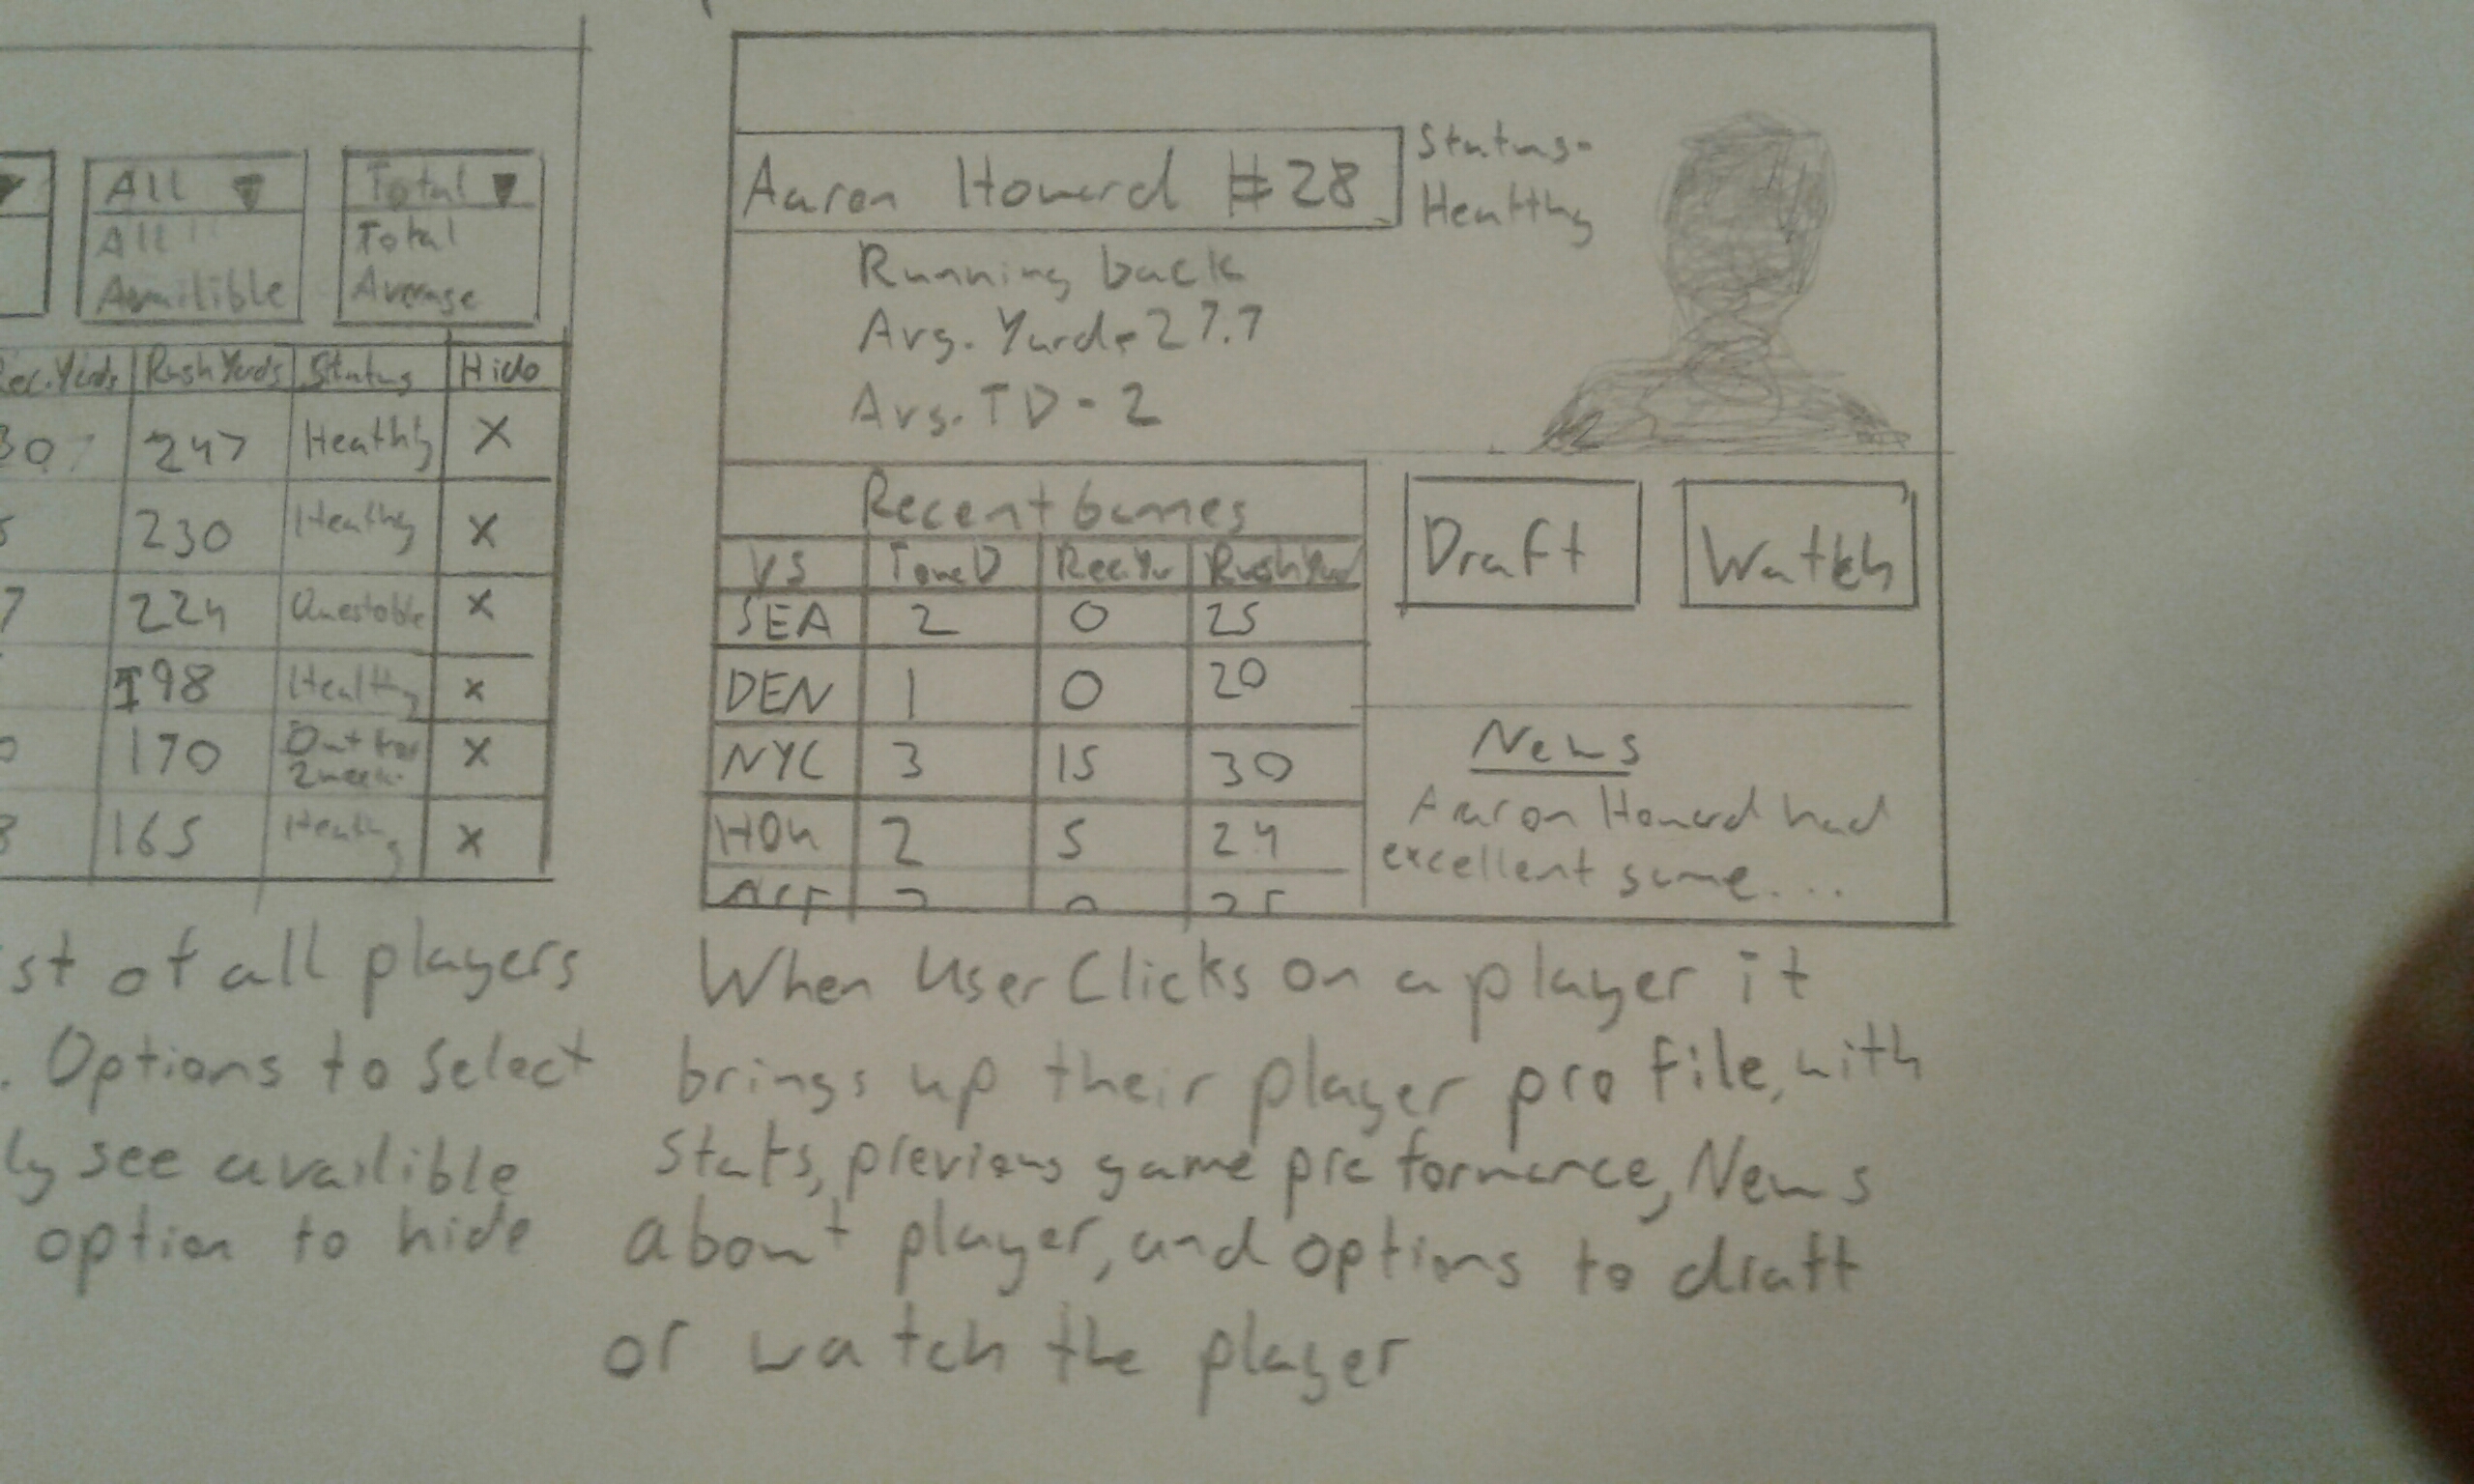 All
All
Availible
Total
Total
Average
Rec.Yards Rush Yards Status Hide
307 247 Healthy X
230 Healthy X
7 224 X
198 Healthy X
170 Out for 2 week X
165 Healthy X
st of all players
. Options to Select
ly see availible
option to hide
Aaron Howard #28
Status-
Healthy
Running back
Avg. Yard-27.7
Avg. TD-2
Recent Games
VS Rec.Ya Rush Yard
SEA 2 0 25
DEN 1 0 20
NYC 3 15 30
HOU 2 5 24
Draft
Watch
News
Aaron Howard had
excellent game...
When User Clicks on a player it
brings up their player profile, with
Stats, previous game preformance, News
about player, and options to draft
or watch the player